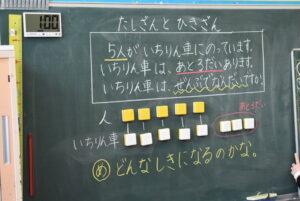 1:00
たしざんと ひきざん
5人が いちりん車にのっています。
いちりん車は、あと3だいあります。
いちりん車は、ぜんぶでなんだいですか。
人
あと3だい
いちりん車
め どんなしきになるのかな。